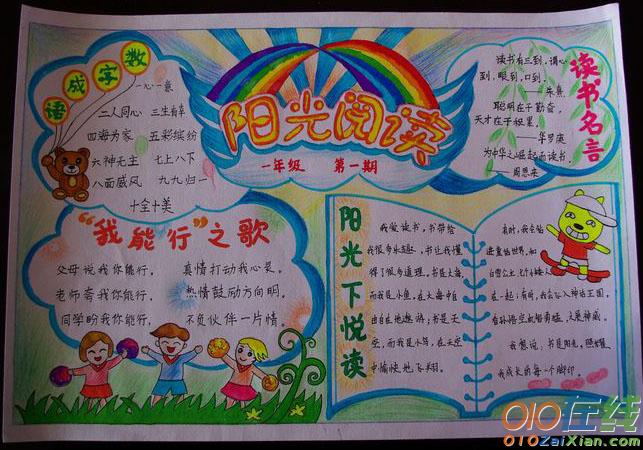 数字成语
一心一意
二人同心 三生有幸
四海为家 五彩缤纷
六神无主 七上八下
八面威风 九九归一
十全十美
阳光阅读
一年级 第一期
读书名言
读书有三到，谓心
到，眼到，口到。
——朱熹
聪明在于勤奋，
天才在于积累。
——华罗庚
为中华之崛起而读书。
——周恩来
“我能行”之歌
父母说我你能行， 真情打动我心
老师夸我你能行， 热情鼓励方向明。
同学盼我你能行， 不负伙伴一片情。
阳光下悦读
我爱读书，书带给
我很多乐趣，书让我懂
得了很多道理。书是大海
而我是小鱼，在大海中自
由自在地遨游；书是天
空，而我是小鸟，在天空
中愉快地飞翔。
有时，我会钻
进童话世界，和
白雪公主
在一起；有时，我会飞入神话王国，
与孙悟空
我想说，书是阳光，照耀
我成长的每一个脚印。
010在线
010ZaiXian.com